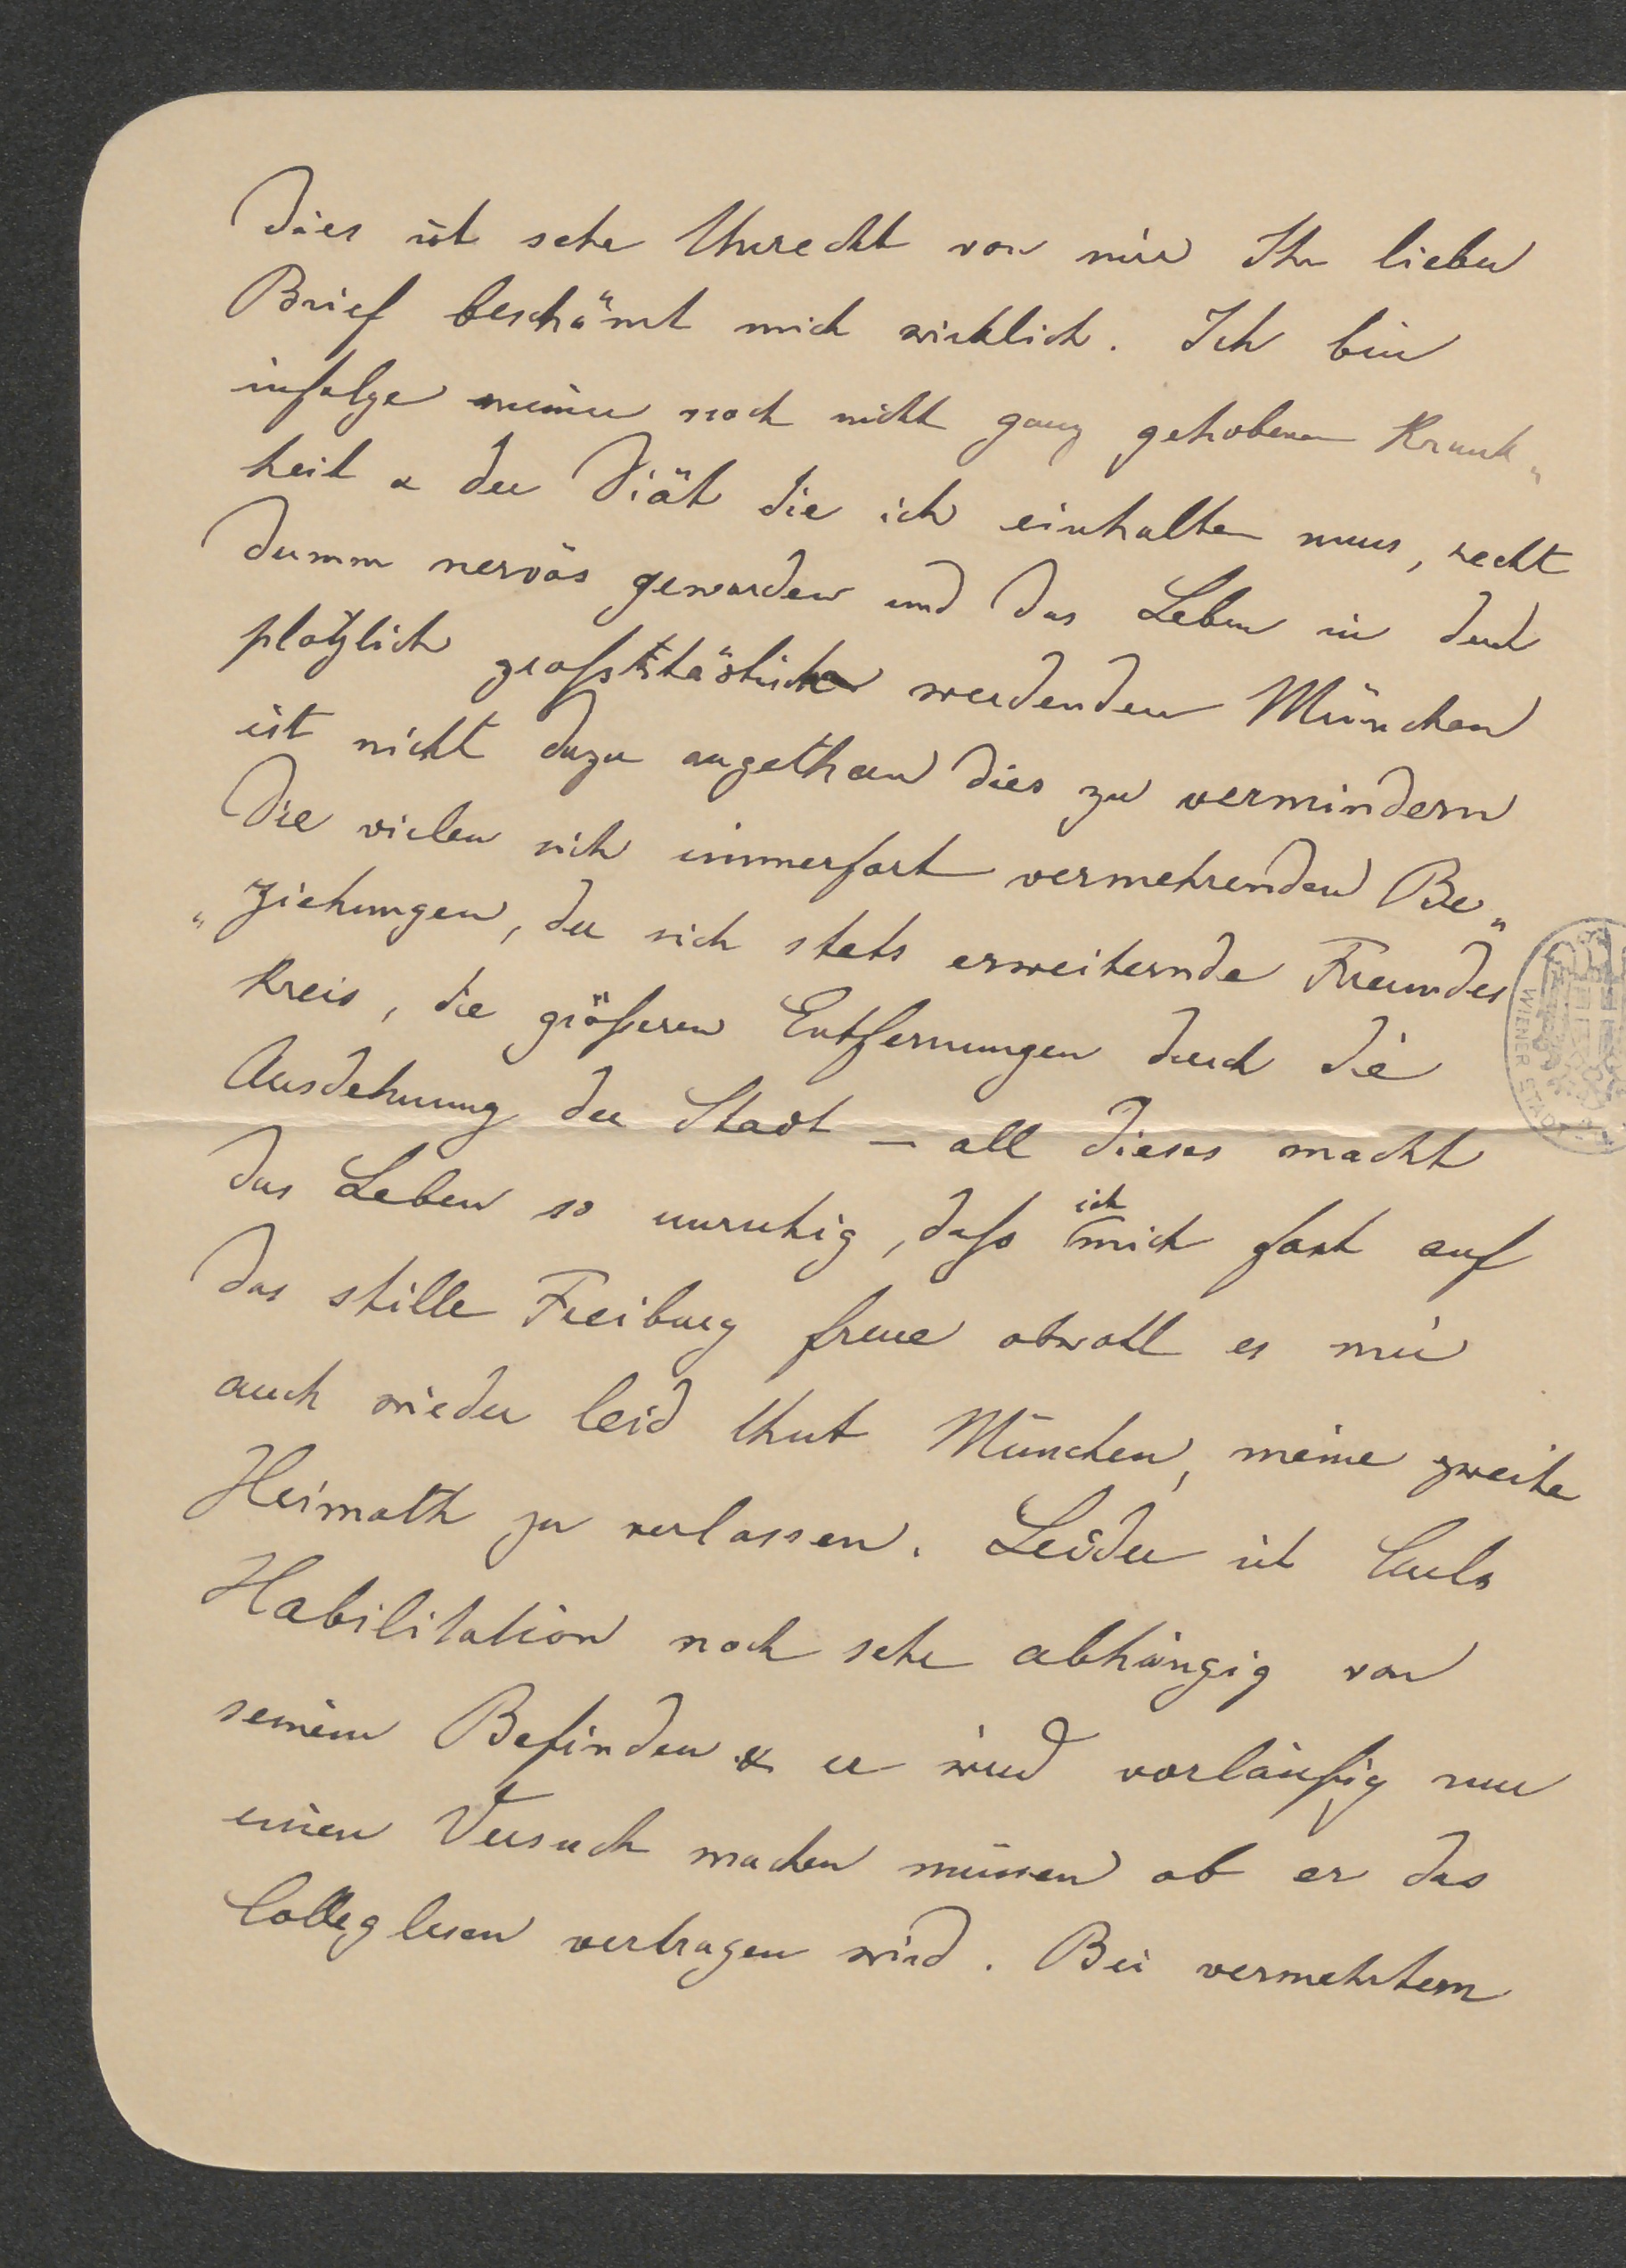 Dies ist sehr Unrecht von mir Ihr lieber
Brief beschämt mich wirklich. Ich bin
infolge meiner noch nicht ganz gehobenen Krank„
heit & der Diät die ich einhalten muss, recht
dumm nervös geworden und das Leben in dem
plötzlich großstädtisch werdenden München
ist nicht dazu angethan dies zu vermindern
Die vielen sich immerfort vermehrenden Be„
„ziehungen, der sich stets erweiternde Freundes
kreis, die größeren Entfernungen durch die
Ausdehnung der Stadt – all dieses macht
das Leben so unruhig, daß ich mich fast auf
das stille Freiburg freue obwohl es mir
auch wieder leid thut München, meine zweite
Heimath zu verlassen. Leider ist Carls
Habilitation noch sehr abhängig von
seinem Befinden & er wird vorläufig nur
einen Versuch machen müssen ob er das
Colleglesen vertragen wird. Bei vermehrtem
WIENER STADT